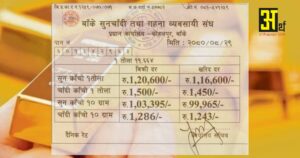 बाँके सुनचाँदी तथा गहना व्यवसायी संघ
प्रधान कार्यालय - कोहलपुर, बाँके
मिति : २०८०/०८/२९
अर्थ
१ तोला ११.६६४
बिक्री दर
खरिद दर
सुन काँचो १ तोला
1,20,600/-
1,16,600/-
चाँदी काँचो १ तोला
1,500/-
1,450/-
सुन काँचो १० ग्राम
1,03,395/-
99,965/-
चाँदी काँचो १० ग्राम
1,286/-
1,243/-
दैनिक रेट